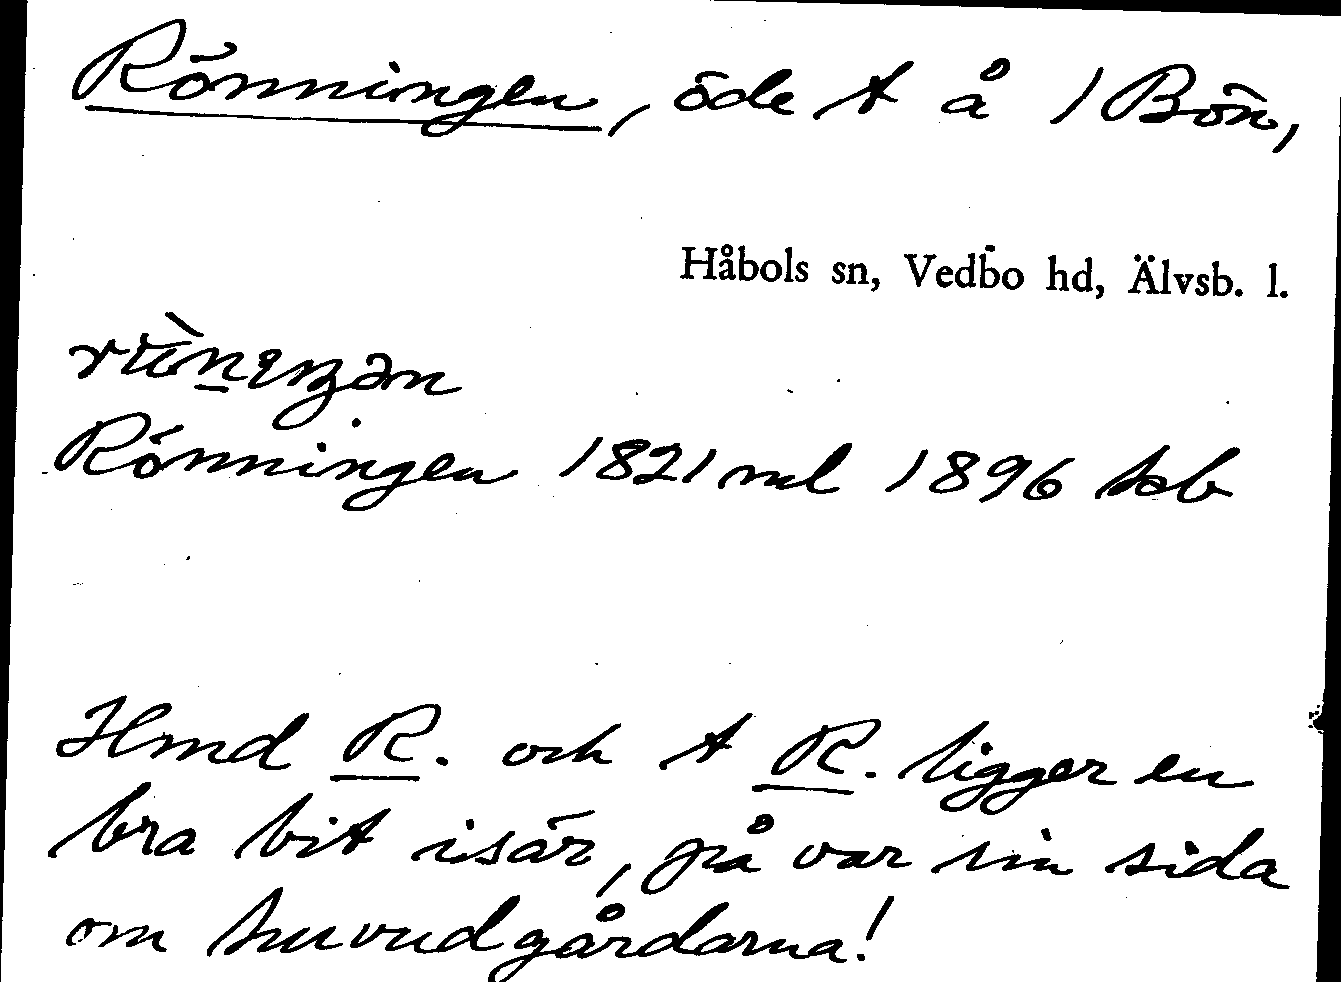 Rönningen, öde t å 1 Bön,
Håbols sn, Vedbo hd, Älvsb. l.
Rönningen 1821 ml 1896 hsb
Hmd R. och t R. ligger en
bra bit isär, på var sin sida
om huvudgårdarna!